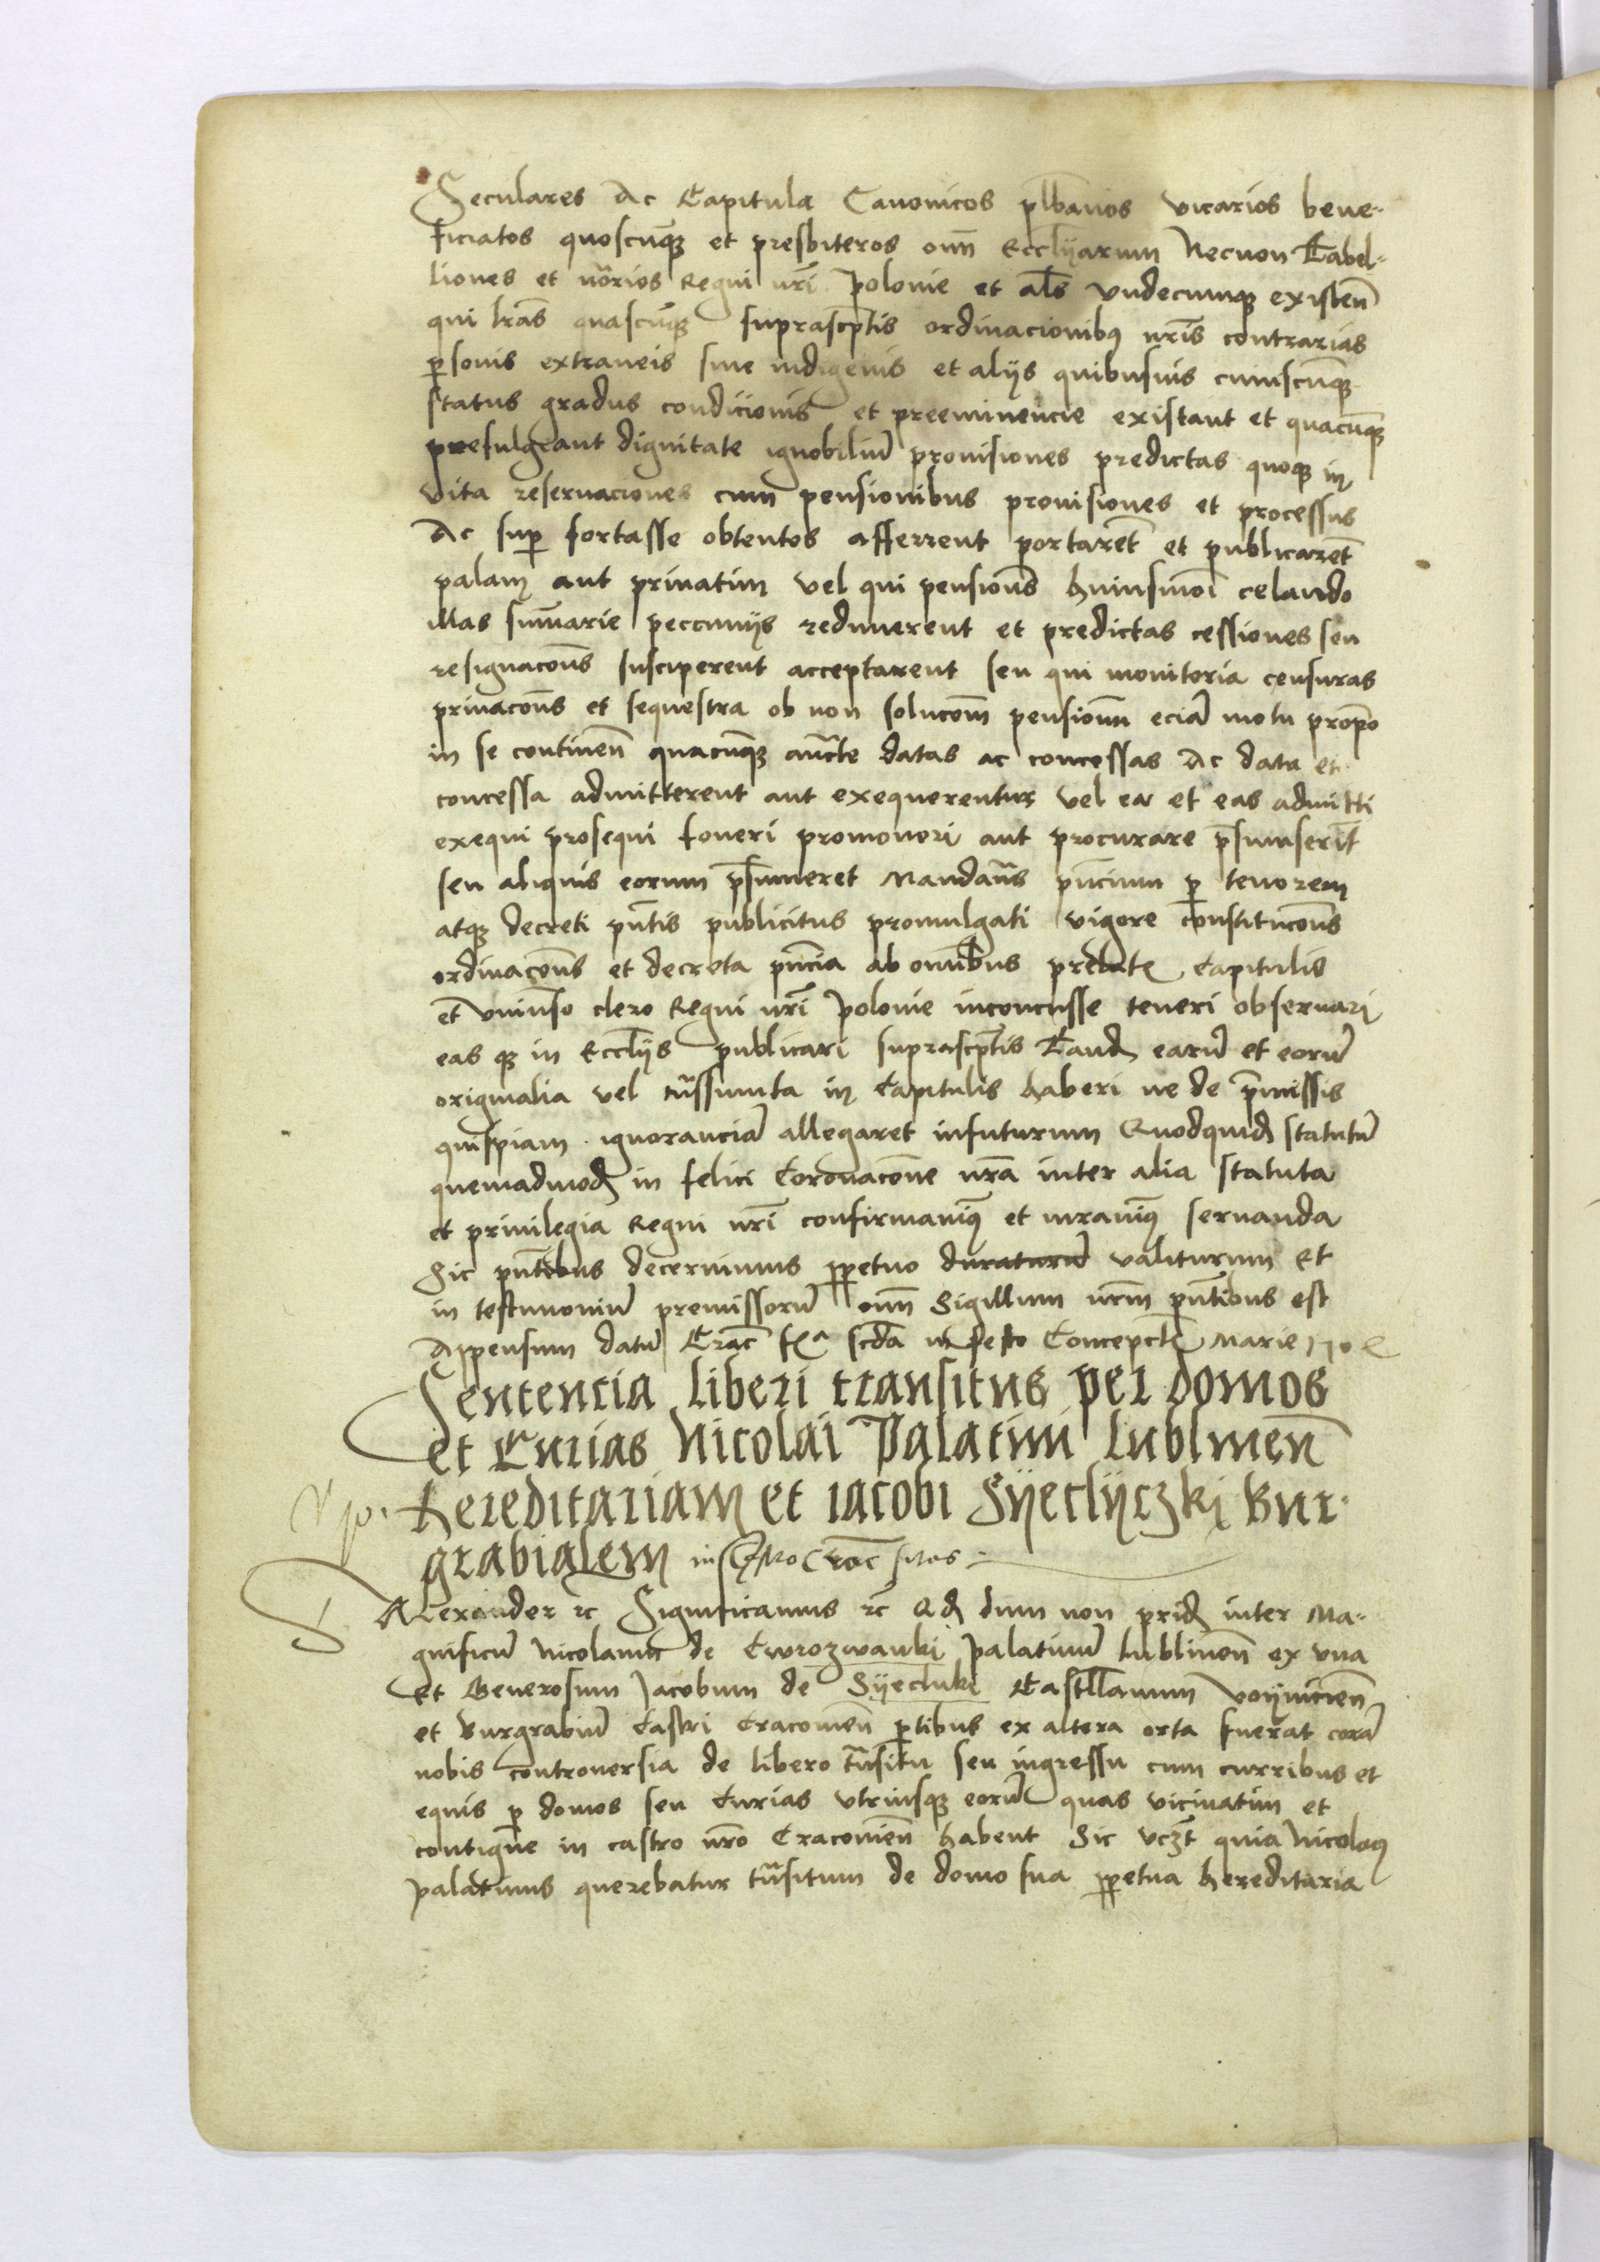 Seculares Ac Capitula Canonicos plbanos vicarios bene-
ficiatos quoscūqȝ et presbiteros oīm Eccliarum Necnon Tabel-
liones et nōrios Regni nrī Polonie et als̄ vndecunqȝ existeñ
qui lrās quascūqȝ suprascptis ordinacionibȝ nrīs contrarias
psonis extraneis siue indigenis et alijs quibusuis cuiuscūqȝ
status gradus condicionis et preeminencie existant et quacūqȝ
prefulgeant dignitate ignobiliū prouisiones predictas quoqȝ in
vita reseruaciones cum pensionibus prouisiones et processus
Ac sup fortasse obtentos afferrent portarēt et publicarēt
palam aut priuatim vel qui pensiōns huiusmōi celando
illas sum̄arie peccunijs redimerent et predictas cessiones seu
resignacōns susciperent acceptarent seu qui monitoria censuras
priuacōns et sequestra ob non solucōm pensionum eciā motu propō
in se contineñ quacūqȝ auc̄te datas ac concessas Ac data et
concessa admitterent aut exequerentur vel ea et eas admitti
exequi prosequi foueri promoueri aut procurare psumserīt
seu aliquis eorum psumeret Mandan̄s pn̄cium p tenorem
atqȝ decreti pn̄tis publicitus promulgati vigore constitucōns
ordinacōns et decreta pn̄cia ab omībus prelatis Capitulis
et vniuso clero Regni nrī Polonie inconcusse teneri obseruari
eas qȝ in Ecclijs publicari suprascptis Tand earū et eorū
originalia vel trāssumta in Capitulis haberi ne de pm̄issis
quispiam ignoranciā allegaret infuturum Quodquid statutū
quemadmod in felici Coronacōne nrā inter alia statuta
et priuilegia Regni nrī confirmauimȝ et iurauimȝ seruanda
Sic pn̄tibus decernimus ppetuo duraturū valiturum Et
in testimoniū premissorū Sigillum nrm̄ pn̄tibus est
Appensum datū Crac̄ fẽ scda Concepc̄ Marie
Sentencia liberi transitus per domos
et Curias Nicolai Palatini lublineñ
hereditariam et iacobi Syeclyczki Bur-
grabialem in Castro Crac̄ sitas
Alexander rc̄ Significamus rc̄ Qd dum non prid inter Ma-
gnificū Nicolaum de Cwrozwanki Palatinū lublineñ ex vna
Et Generosum Jacobum de Syecluki Castellanum Voyniceñ
et Burgrabiū Castri Cracouieñ ptibus ex altera orta fuerat corā
nobis controuersia de libero trāsitu seu ingressu cum curribus et
equis p domos seu Curias vtriusqȝ eorū quas vicinatim et
contigue in castro nrō Cracouieñ habent Sic vczt quia Nicolaus
Palatinus querebatur trāsitum de domo sua ppetua hereditaria